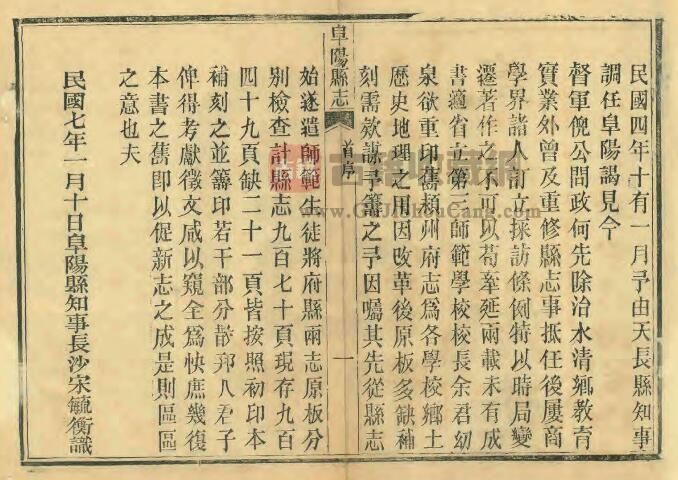 民國四年十有一月予由天長縣知事
調任阜陽謁見今
督軍倪公問政何先除治水清鄉教育
實業外曾及重修縣志事抵任後屢商
學界諸人訂立採訪條例特以時局變
遷著作之才不可以苟牽延兩載未有成
書適省立第三師範學校校長余君幼
泉欲重印舊潁州府志爲各學校鄉土
歷史地理之用因改革後原板多缺補
刻需款謀予籌之予因囑其先從縣志
阜陽縣志
首序
一
始遂遣師範生徒將府縣兩志原板分
别檢查計縣志九百七十頁現存九百
四十九頁缺二十一頁皆按照初印本
補刻之並籌印若干部分散邦人君子
俾得考獻徵文咸以窺全爲快庶幾復
本書之舊卽以促新志之成是則區區
之意也夫
民國七年一月十日阜陽縣知事長沙宋毓衡識
古籍收藏網
GuJiShouCang.Com